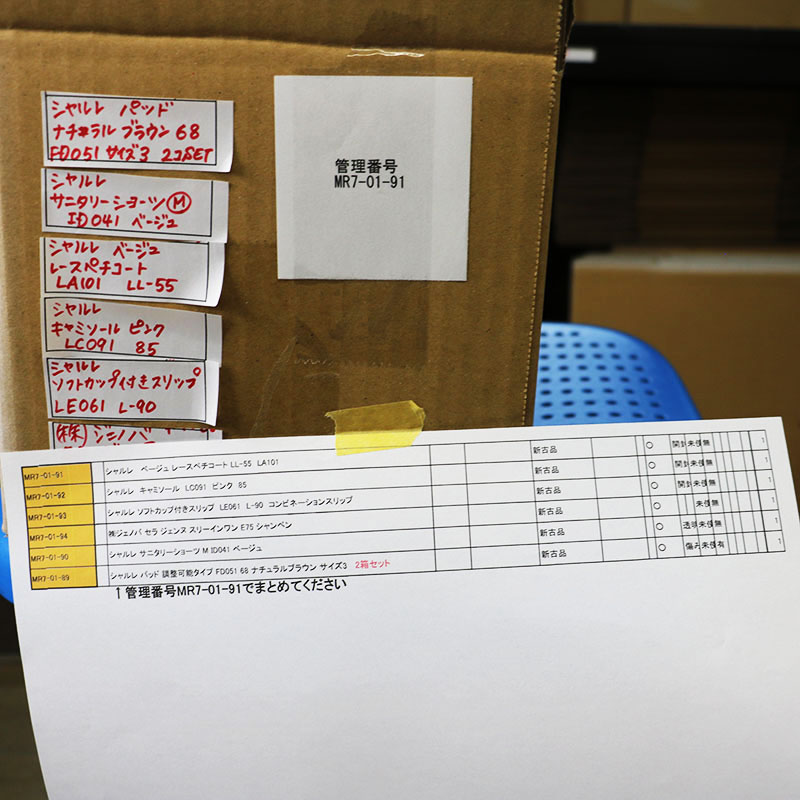 シャルレ パッド
ナチュラル ブラウン 68
FD051 サイズ3 2コSET
シャルレ
サニタリーショーツ Ⓜ
ID041 ベージュ
シャルレ ベージュ
レースペチコート
LA101 LL-55
シャルレ
キャミソール ピンク
LC091 85
シャルレ
ソフトカップ付きスリップ
LE061 L-90
(株) ジェノバ
管理番号
MR7-01-91
MR7-01-91 シャルレ ベージュ レースペチコート LL-55 LA101 新古品 ○ 開封 未使 無 1
MR7-01-92 シャルレ キャミソール LC091 ピンク 85 新古品 ○ 開封 未使 無 1
MR7-01-93 シャルレ ソフトカップ付きスリップ LE061 L-90 コンビネーションスリップ 新古品 ○ 未使 無 1
MR7-01-94 ㈱ジェノバ セラ ジェンヌ スリーインワン E75 シャンペン 新古品 ○ 透明 未使 無 1
MR7-01-90 シャルレ サニタリーショーツ M ID041 ベージュ 新古品 ○ 傷み 未使 有 1
MR7-01-89 シャルレ パッド 調整可能タイプ FD051 68 ナチュラルブラウン サイズ3 2箱セット
↑管理番号MR7-01-91でまとめてください